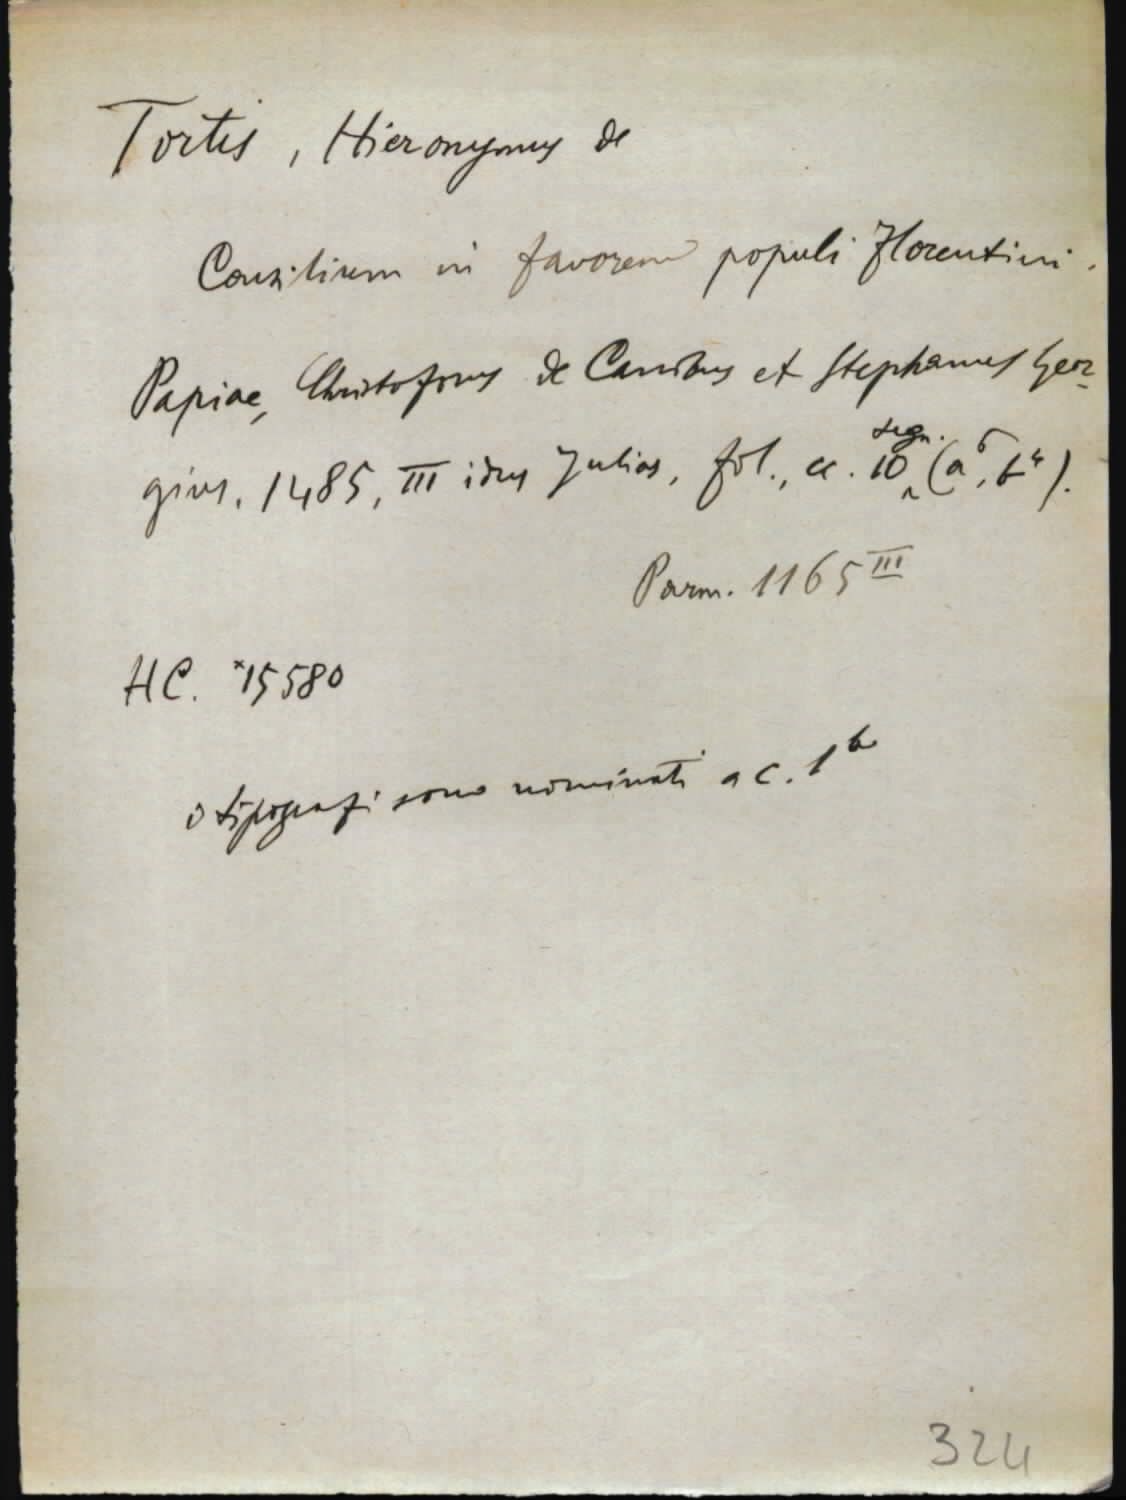 Tortis, Hieronymus de
Consilium in favorem populi Florentini.
Papiae, Christoforus de Canibus et Stephanus Geor-
gius, 1485, III idus Julias, fol., cc. 10 segn. (a⁶, b⁴).
Parm. 1165 III
HC. *15580
i tipografi sono nominati a c. 1ᵇ
324